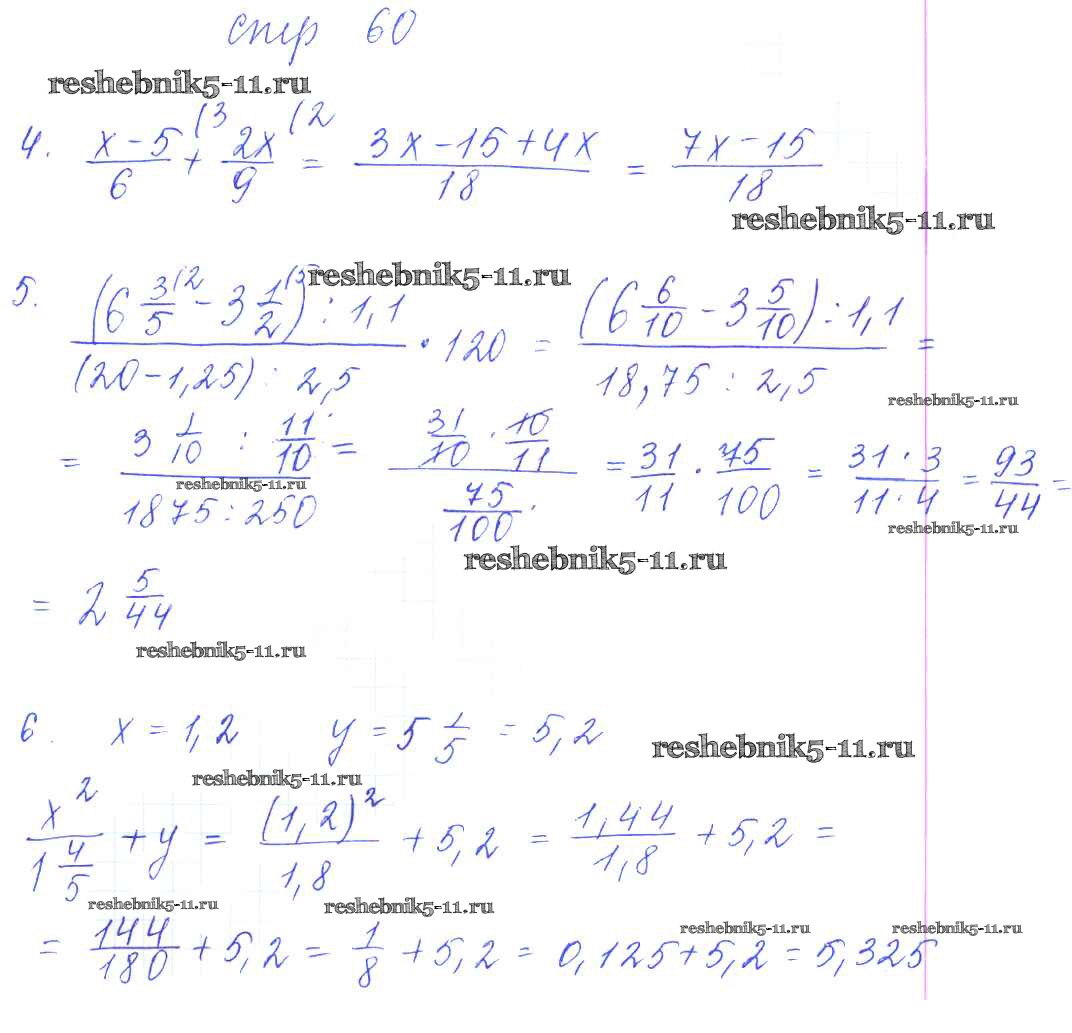 стр 60
reshebnik5-11.ru
4. (x-5)/6 (3 + 2x/9 (2 = (3x-15+4x)/18 = (7x-15)/18
reshebnik5-11.ru
reshebnik5-11.ru
5. ((6 3/5 (2 - 3 1/2 (5) : 1,1)/((20-1,25) : 2,5) · 120 = ((6 6/10 - 3 5/10) : 1,1)/(18,75 : 2,5) =
reshebnik5-11.ru
= (3 1/10 : 11/10)/(1875 : 250) = (31/10 · 10/11)/(75/100) = 31/11 · 75/100 = (31·3)/(11·4) = 93/44 =
reshebnik5-11.ru
reshebnik5-11.ru
reshebnik5-11.ru
= 2 5/44
reshebnik5-11.ru
6. x = 1,2 y = 5 1/5 = 5,2
reshebnik5-11.ru
reshebnik5-11.ru
x²/(1 4/5) + y = (1,2)²/1,8 + 5,2 = 1,44/1,8 + 5,2 =
reshebnik5-11.ru
reshebnik5-11.ru
reshebnik5-11.ru
reshebnik5-11.ru
= 144/180 + 5,2 = 1/8 + 5,2 = 0,125+5,2 = 5,325